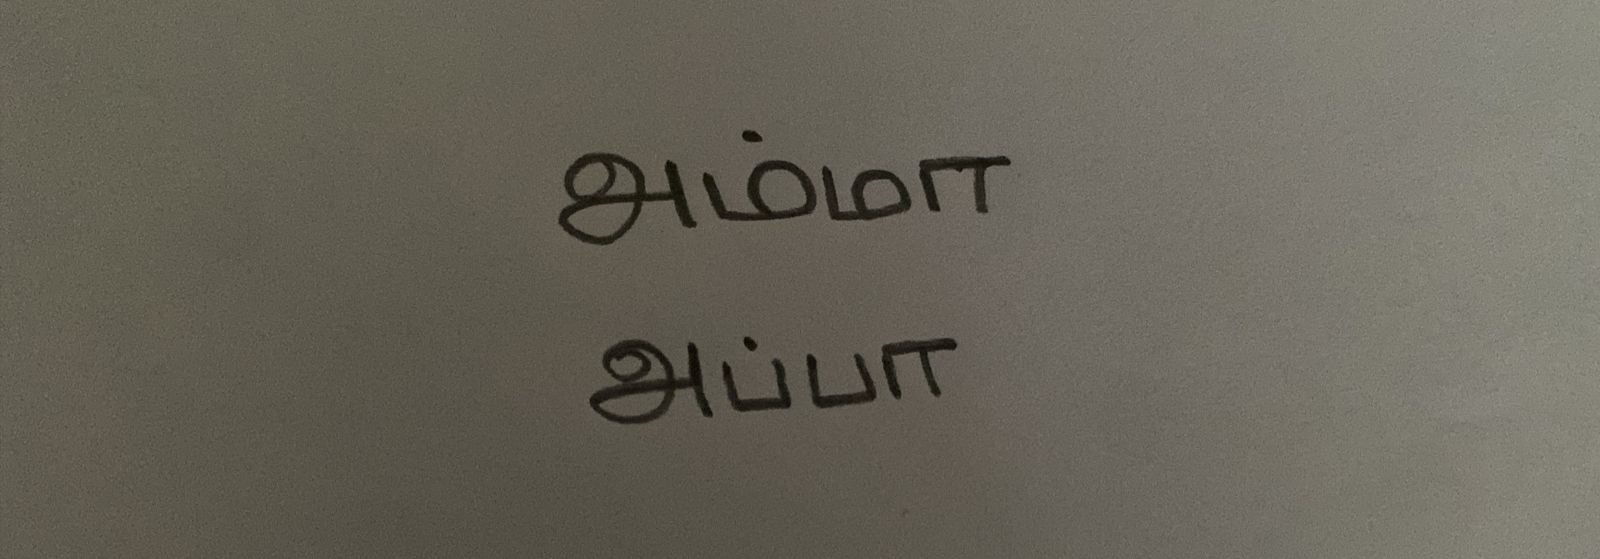 அம்மா
அப்பா